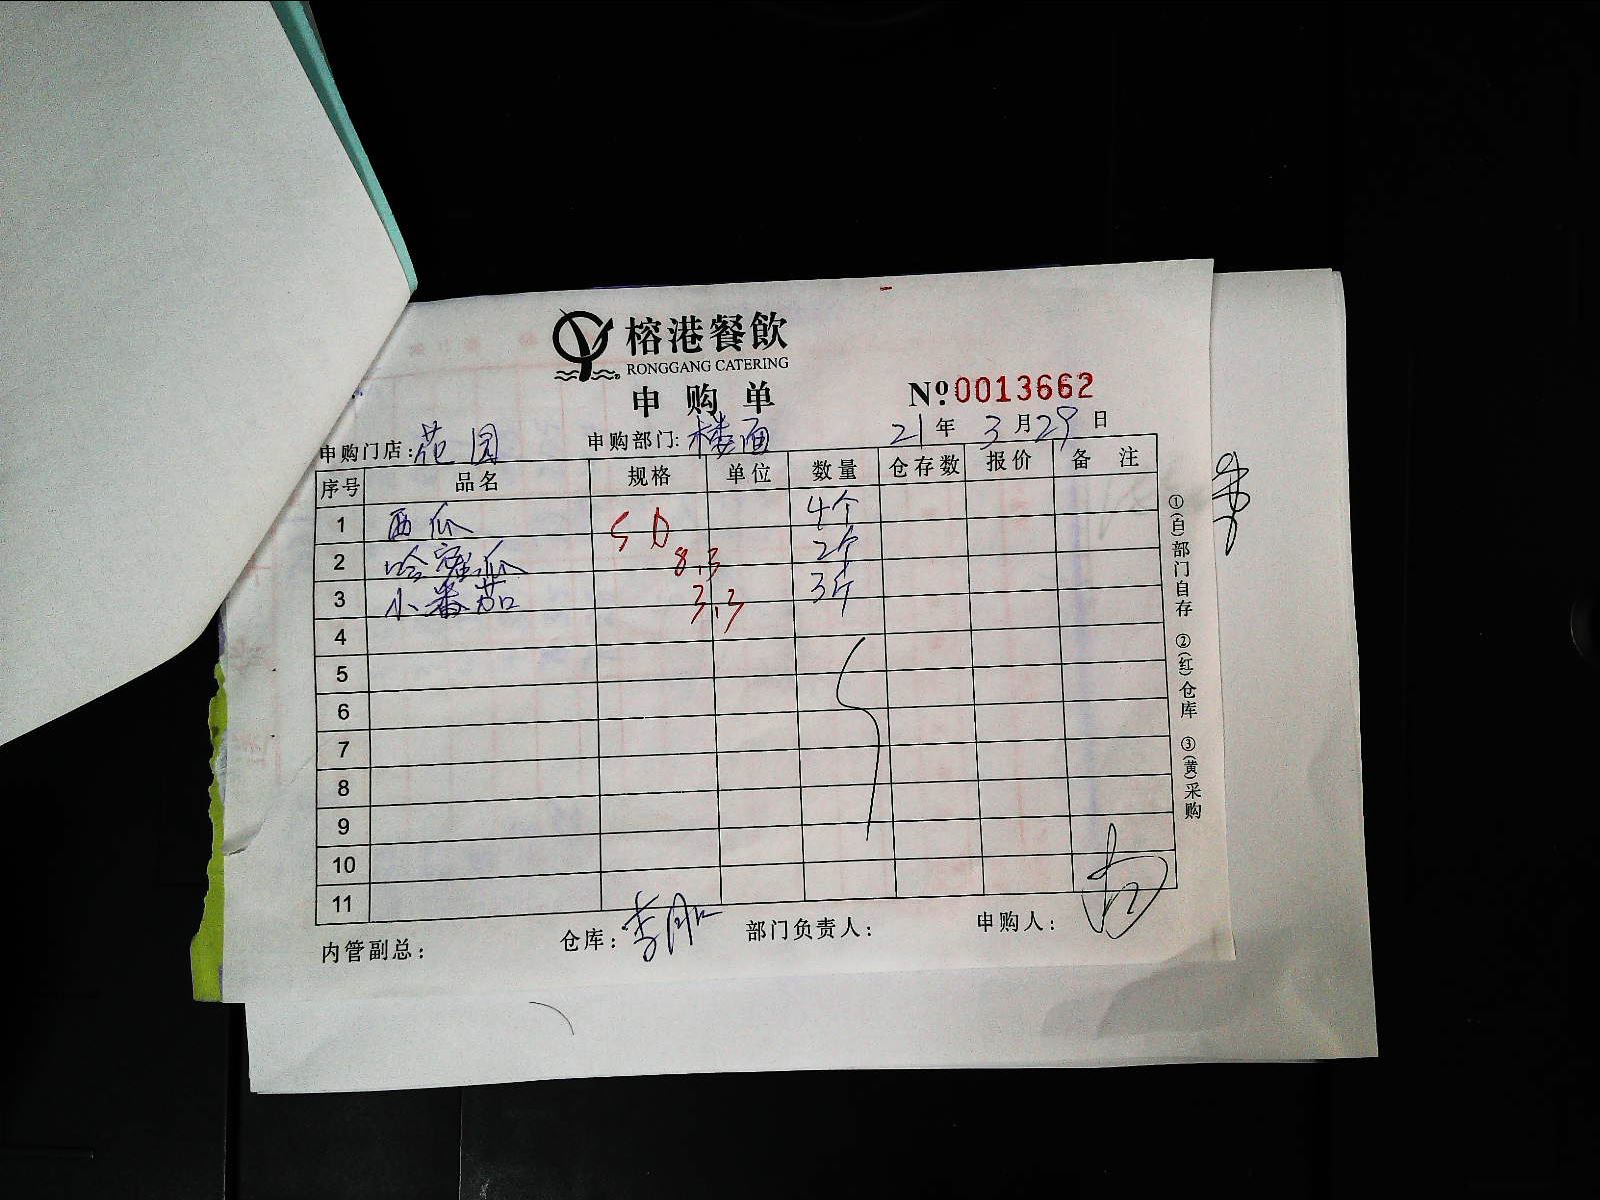 榕港餐飲
RONGGANG CATERING
申购单
No 0013662
申购门店:花园 申购部门:楼面 21年3月29日
序号 品名 规格 单位 数量 仓存数 报价 备注
1 西瓜 50 4个
2 哈蜜瓜 8.3 2个
3 小番茄 3.3 3斤
4
5
6
7
8
9
10
11
内管副总: 仓库:李 部门负责人: 申购人:
①(白)部门自存 ②(红)仓库 ③(黄)采购